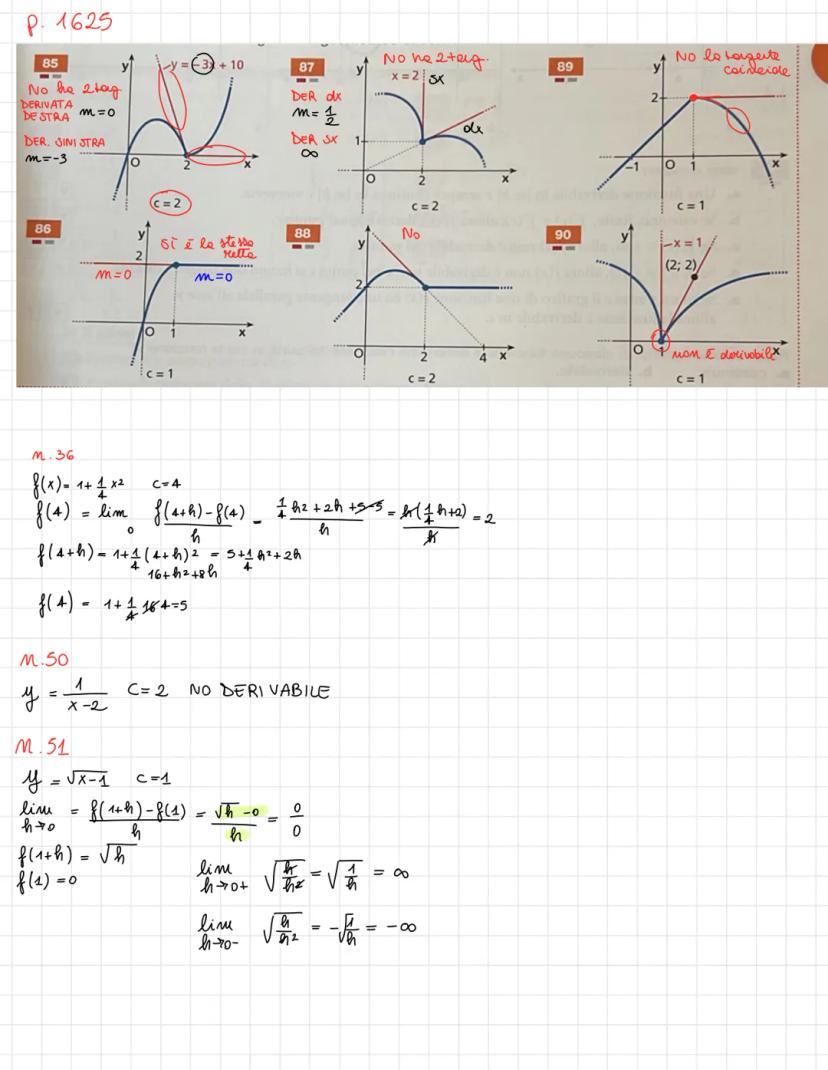 p. 1625
85
y
-y = -3x + 10
No ha 2 tag
DERIVATA
DESTRA m=0
DER. SINISTRA
m=-3
O
2
x
c = 2
87
y
No ha 2 tag.
x = 2
sx
DER dx
m= 1/2
DER SX
∞
dx
1
O
2
x
c = 2
89
y
No la tangente
coincide
2
-1
O
1
x
c = 1
86
y
sì è la stessa
retta
2
m=0
m=0
O
1
x
c = 1
88
y
No
2
O
2
4
x
c = 2
90
y
x = 1
(2; 2)
O
1
non è derivabile
x
c = 1
n.36
f(x)= 1+ 1/4 x² c=4
f(4) = lim 0 f(4+h)-f(4) / h = 1/4 h²+2h+5-5 / h = h(1/4 h+2) / h = 2
f(4+h)= 1+1/4 (4+h)² = 5+1/4 h²+2h
16+h²+8h
f(4) = 1+1/4 16 4=5
n.50
y = 1/x-2 C=2 NO DERIVABILE
n.51
y = √x-1 c=1
lim h→0 = f(1+h)-f(1) / h = √h-0 / h = 0/0
f(1+h) = √h
f(1)=0
lim h→0+ √h/h² = √1/h = ∞
lim h→0- √h/h² = -√1/h = -∞